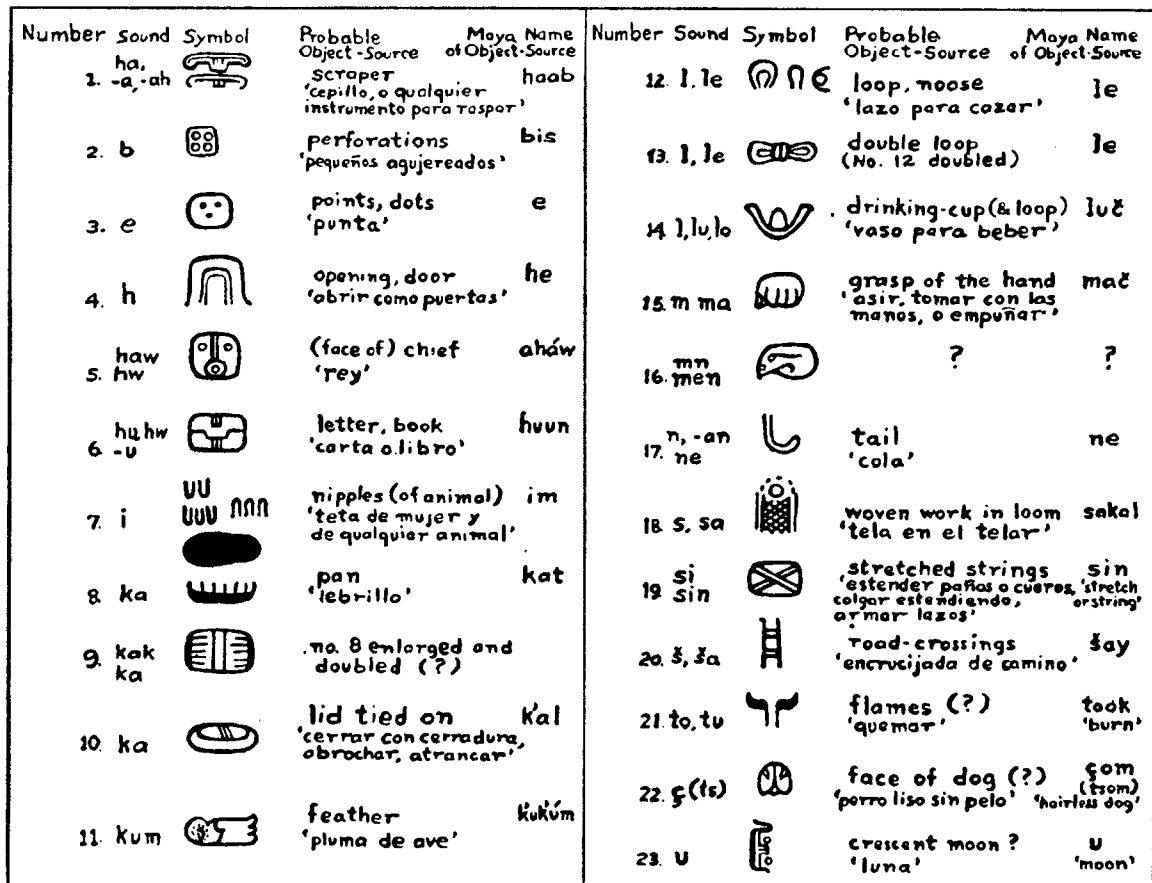 Number Sound Symbol Probable Object-Source Maya Name of Object-Source
1. ha, -a, -ah scraper haab
'cepillo, o qualquier
instrumento para raspar'
2. b perforations bis
'pequeños agujereados'
3. e points, dots e
'punta'
4. h opening, door he
'abrir como puertas'
5. haw hw (face of) chief aháw
'rey'
6. hu, hw -u letter, book huun
'carta o libro'
7. i nipples (of animal) im
'teta de mujer y
de qualquier animal'
8. ka pan kat
'lebrillo'
9. kak ka no. 8 enlarged and
doubled (?)
10. ka lid tied on k'al
'cerrar con cerradura,
abrochar, atrancar'
11. kum feather k'uk'úm
'pluma de ave'
Number Sound Symbol Probable Object-Source Maya Name of Object-Source
12. l, le loop, noose le
'lazo para cazar'
13. l, le double loop le
(No. 12 doubled)
14. l, lu, lo drinking-cup (& loop) luč
'vaso para beber'
15. m ma grasp of the hand mač
'asir, tomar con las
manos, o empuñar'
16. mn men ? ?
17. n, -an ne tail ne
'cola'
18. s, sa woven work in loom sakal
'tela en el telar'
19. si sin stretched strings sin
'estender paños o cueros, 'stretch
colgar estendiendo, or string'
armar lazos'
20. š, ša road-crossings šay
'encrucijada de camino'
21. to, tu flames (?) took
'quemar' 'burn'
22. ç (ts) face of dog (?) çom
(tsom)
'perro liso sin pelo' 'hairless dog'
23. u crescent moon ? u
'luna' 'moon'